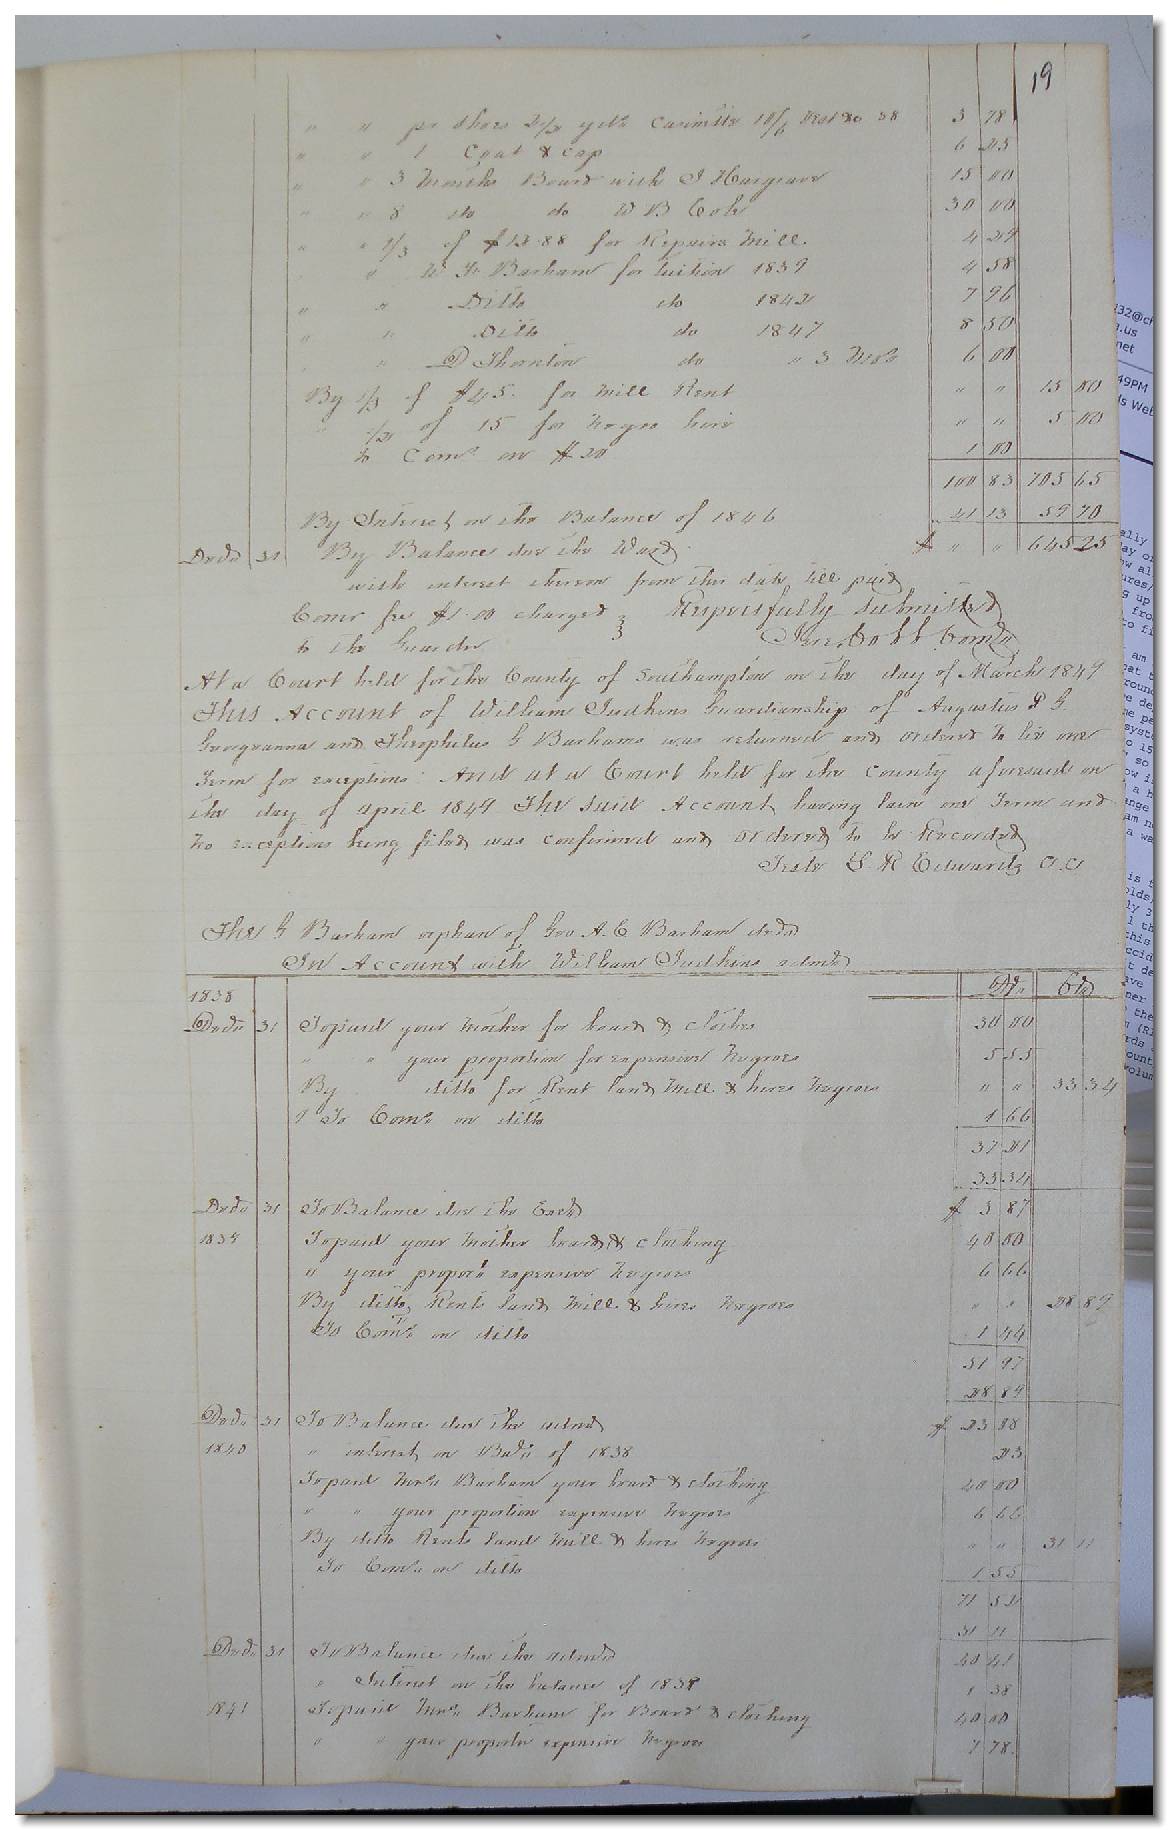 19
" " pr shoes 2/3 yds Casinette 10/6 38 3 78
" " 1 Coat & cap 6 25
" " 3 Months Board with J Hargrave 15 00
" " 8 do do W B Cobb 30 00
" " 1/3 of $13.88 for Repairs Mill 4 29
" W Barham for tuition 1839 4 58
" " Ditto do 1842 7 96
" " Ditto do 1847 8 50
" " D Thornton do " 3 6 00
By 1/3 of $45. for Mill Rent " " 15 00
" of 15 for Negro hire " " 5 00
to Coms on $20 1 00
100 83 705 65
By Interest on the Balance of 1846 41 13 59 70
Decr 31 By Balance due the Ward $ " " 645 25
with interest thereon from this date till paid
Comr fee $1.00 charged } Respectfully submitted
to the Guardn Cobb Comr
At a Court held for the County of Southampton on the day of March 1849
This Account of William Judkins Guardianship of Augustus
Georgeanna and Theophilus G Barhams was returned and ordered to lie one
Term for exceptions: And at a Court held for the County aforesaid on
the day of April 1849 The said Account having lain one Term and
no exceptions being filed was confirmed and ordered to be Recorded
Teste L R Edwards C.C
Theo G Barham orphan of Geo A. C Barham decd
In Account with William Judkins admr
1838 Dr Cr
Decr 31 To paid your Mother for board & clothes 30 00
" " your proportion for expensive Negroes 5 55
By ditto for Rent land Mill & hires Negroes " " 33 34
To Coms on ditto 1 66
37 21
33 34
Decr 31 To Balance due the $ 3 87
1839 To paid your Mother board & clothing 40 00
" your proporn expensive Negroes 6 66
By ditto Rents land Mill & hires Negroes " " 28 89
To Coms on ditto 1 44
51 97
28 89
Decr 31 To Balance due the admr $ 23 08
1840 " interest on Balc of 1838 23
To paid Mrs Barham your board & clothing 40 00
" " your proportion expensive Negroes 6 66
By ditto Rents land Mill & hires Negroes " " 31 11
To Coms on ditto 1 55
71 52
31 11
Decr 31 To Balance due the admr 40 41
" Interest on the balance of 1838 1 38
1841 To paid Mrs Barham for Board & clothing 40 00
" " your proporn expensive Negroes 7 78